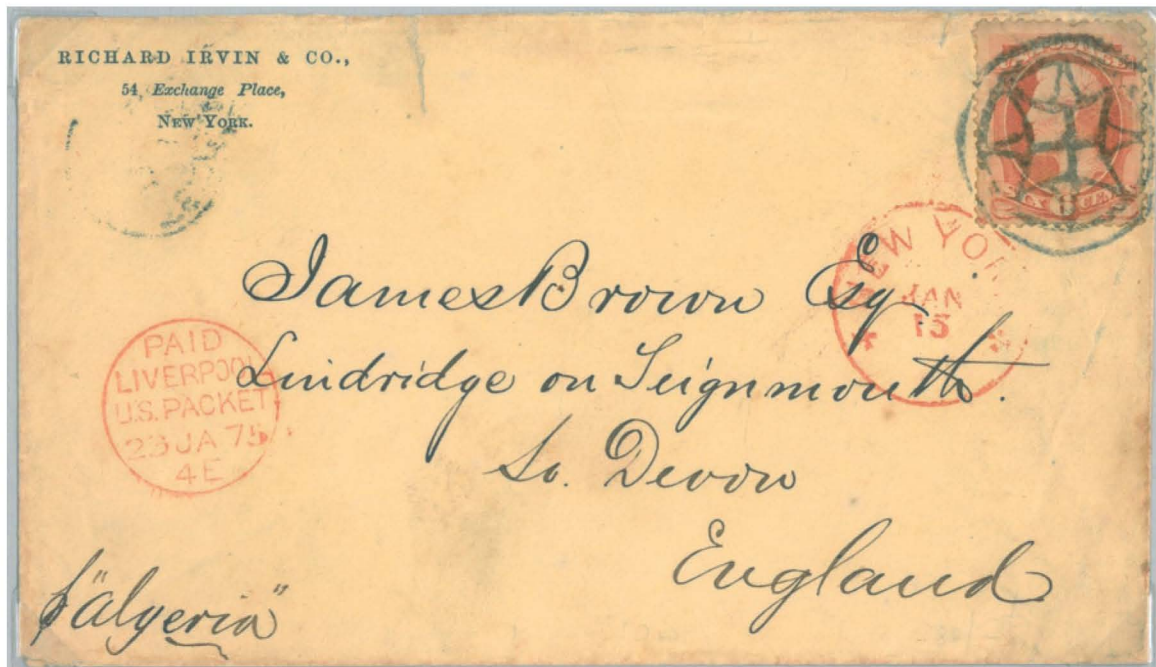 RICHARD IRVIN & CO.,
54, Exchange Place,
NEW YORK.
NEW YORK
JAN
13
James Brown Esq
Lindridge on Teignmouth.
So. Devon
England
PAID
LIVERPOOL
U.S. PACKET
23 JA 75
4 E
p "Algeria"